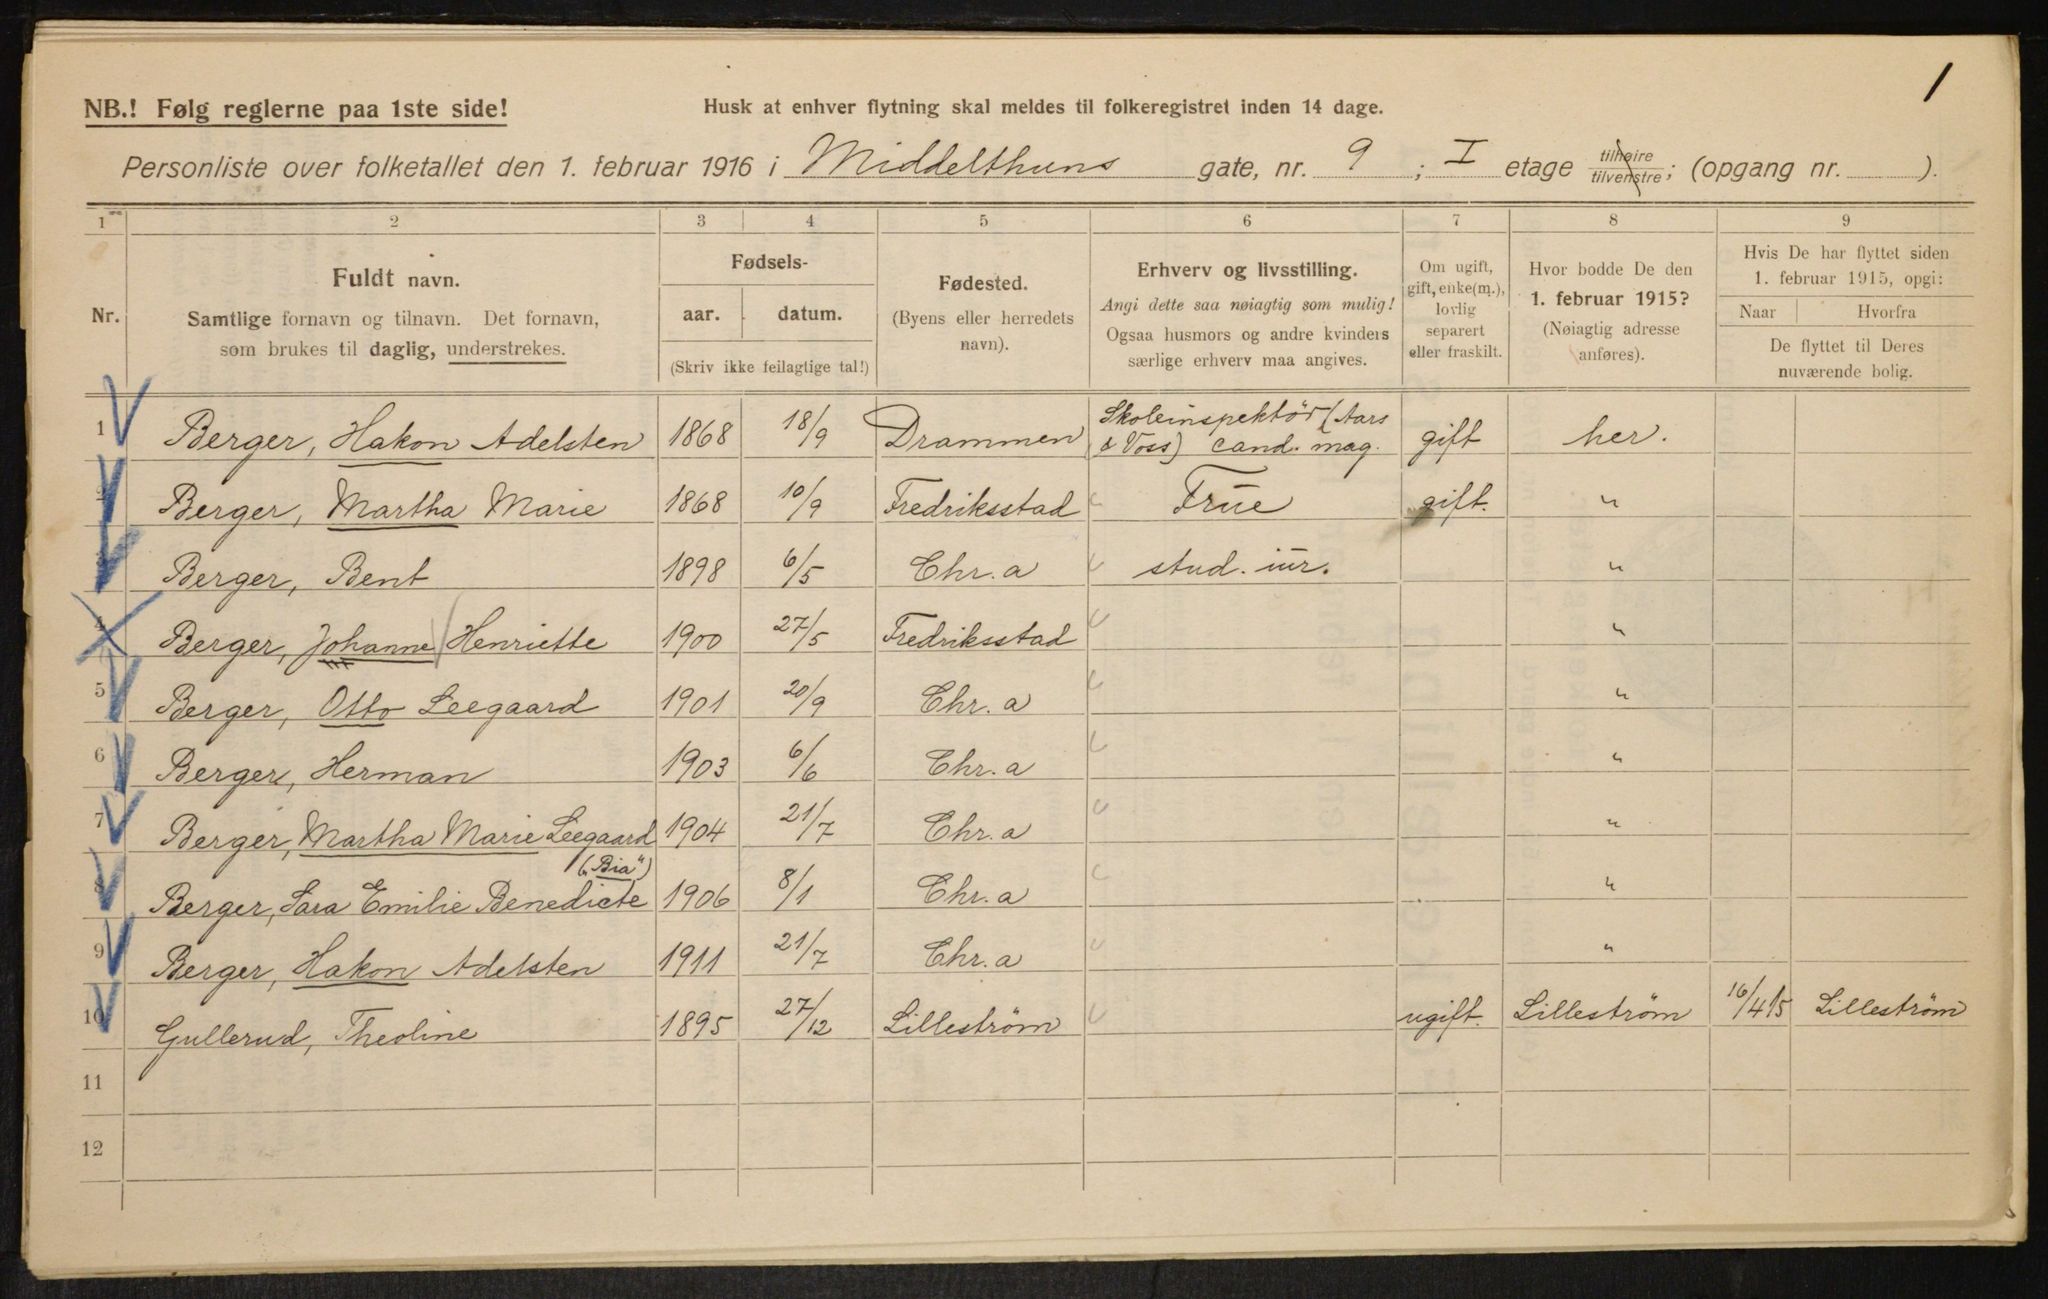 1
NB.! Følg reglerne paa 1ste side!
Husk at enhver flytning skal meldes til folkeregistret inden 14 dage.
Personliste over folketallet den 1. februar 1916 i Middelthuns gate, nr. 9 ; I etage tilhøire tilvenstre; (opgang nr. ).
1 2 3 4 5 6 7 8 9
Nr.
Fuldt navn.
Samtlige fornavn og tilnavn. Det fornavn,
som brukes til daglig, understrekes.
Fødsels-
aar. datum.
(Skriv ikke feilagtige tal!)
Fødested.
(Byens eller herredets
navn).
Erhverv og livsstilling.
Angi dette saa nøiagtig som mulig!
Ogsaa husmors og andre kvinders
særlige erhverv maa angives.
Om ugift,
gift, enke(m.),
lovlig
separert
eller fraskilt.
Hvor bodde De den
1. februar 1915?
(Nøiagtig adresse
anføres).
Hvis De har flyttet siden
1. februar 1915, opgi:
Naar Hvorfra
De flyttet til Deres
nuværende bolig.
1 Berger, Hakon Adelsten 1868 18/9 Drammen Skoleinspektör (Aars & Voss) cand. mag. gift her.
2 Berger, Martha Marie 1868 10/9 Fredriksstad Frue gift. "
3 Berger, Bent 1898 6/5 Chr.a stud. iur. "
4 Berger, Johanne Henriette 1900 27/5 Fredriksstad "
5 Berger, Otto Leegaard 1901 20/9 Chr.a "
6 Berger, Herman 1903 6/6 Chr.a "
7 Berger, Martha Marie Leegaard 1904 21/7 Chr.a "
("Bia")
8 Berger, Sara Emilie Benedicte 1906 8/1 Chr.a "
9 Berger, Hakon Adelsten 1911 21/7 Chr.a "
10 Gullerud, Theoline 1895 27/12 Lilleström ugift. Lilleström 16/4 15 Lilleström
11
12